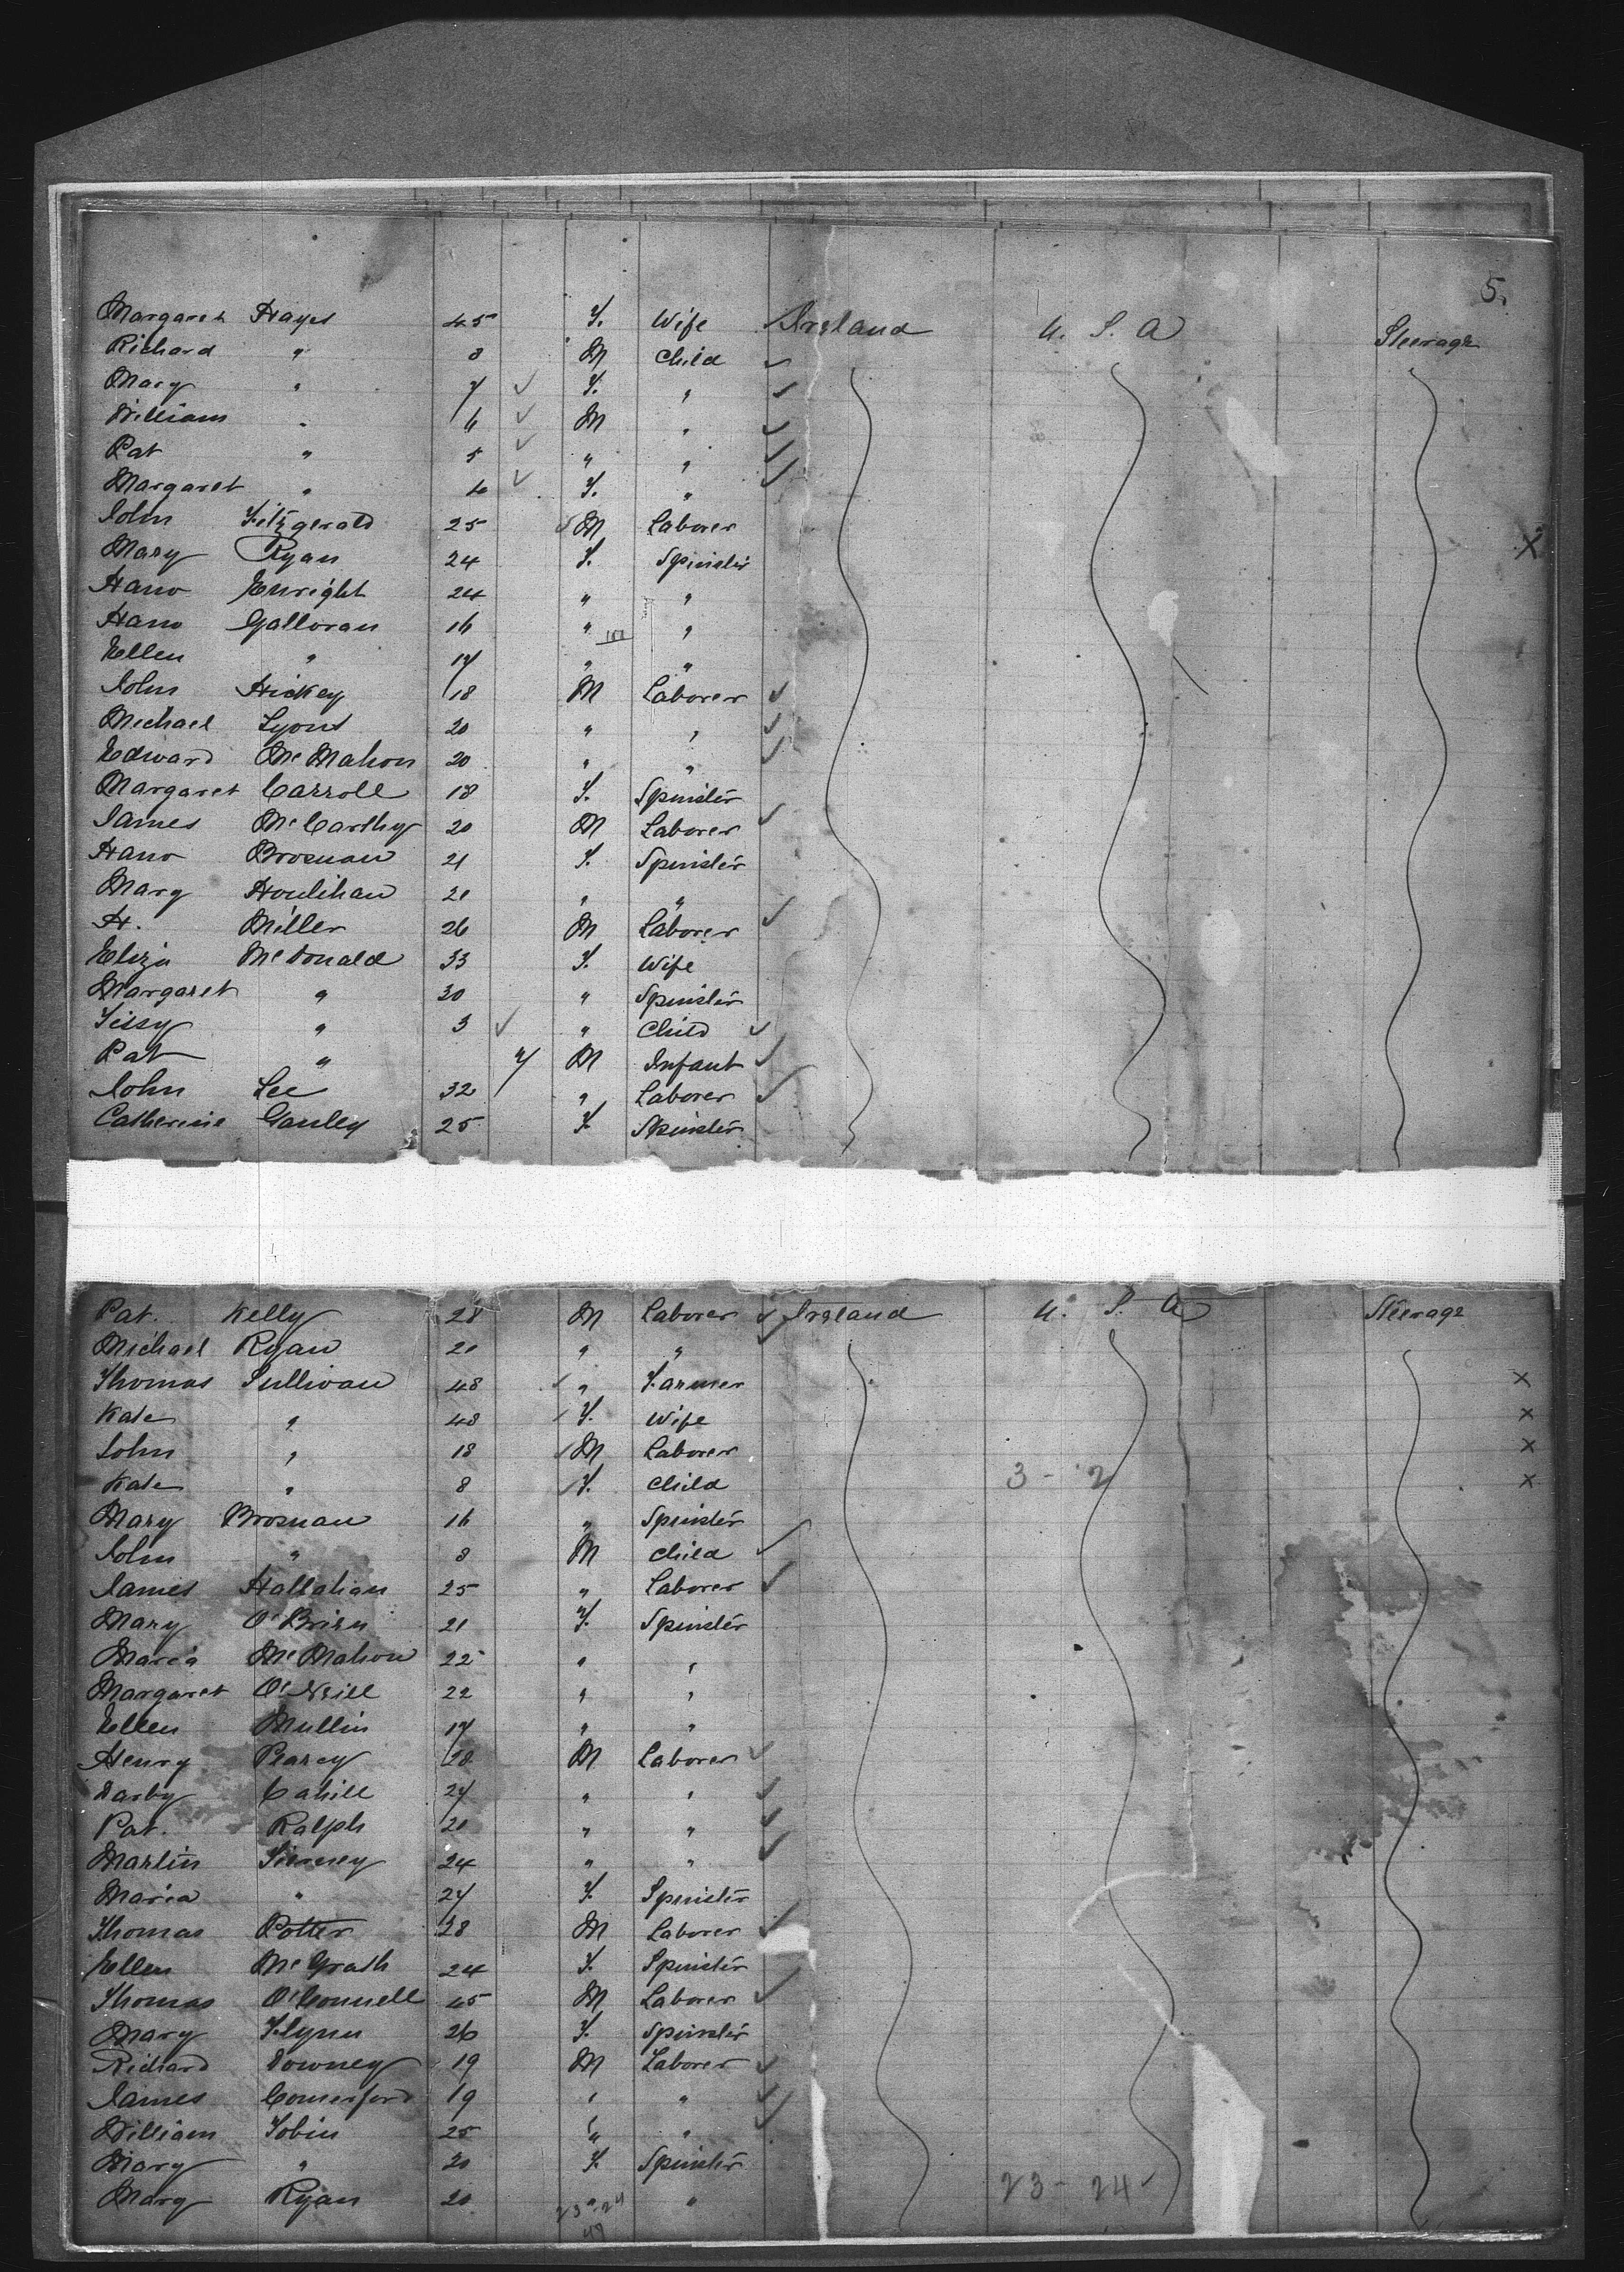 5.
Margaret Hayes 45 F. Wife Ireland U. S. A Steerage
Richard " 8 M Child
Mary " 7 F. "
William " 6 M "
Pat " 5 " "
Margaret " 4 F. "
John Fitzgerald 25 M Laborer X
Mary Ryan 24 F. Spinster
Hano Enright 24 " "
Hano Galloran 16 " "
Ellen " 17 " "
John Hickey 18 M Laborer
Michael Lyons 20 " "
Edward McMahon 20 " "
Margaret Carroll 18 F. Spinster
James McCarthy 20 M Laborer
Hano Brosnan 21 F. Spinster
Mary Houlihan 21 " "
H. Miller 26 M Laborer
Eliza McDonald 33 F. Wife
Margaret " 30 " Spinster
Sissy " 3 " Child
Pat " 7 M Infant
John Lee 32 " Laborer
Catherine Ganley 25 F. Spinster
Pat. Kelly 28 M Laborer Ireland U. S. A Steerage
Michael Ryan 21 " "
Thomas Sullivan 48 " Farmer X
Kate " 48 F. Wife X
John " 18 M Laborer X
Kate " 8 F. Child 3 - 2 X
Mary Brosnan 16 " Spinster
John " 8 M Child
James Hallahan 25 " Laborer
Mary O'Brien 21 F. Spinster
Maria McMahon 22 " "
Margaret O'Neill 22 " "
Ellen Mullin 17 " "
Henry Pearcy 18 M Laborer
Darby Cahill 27 " "
Pat. Ralph 21 " "
Martin Tierney 24 " "
Maria " 27 F. Spinster
Thomas Potter 28 M Laborer
Ellen McGrath 24 F. Spinster
Thomas O'Connell 45 M Laborer
Mary Flynn 26 F. Spinster
Richard Downey 19 M Laborer
James Comerford 19 " "
William Tobin 25 " "
Mary " 20 F. Spinster
Mary Ryan 20 " " 23 - 24
23 - 24
47